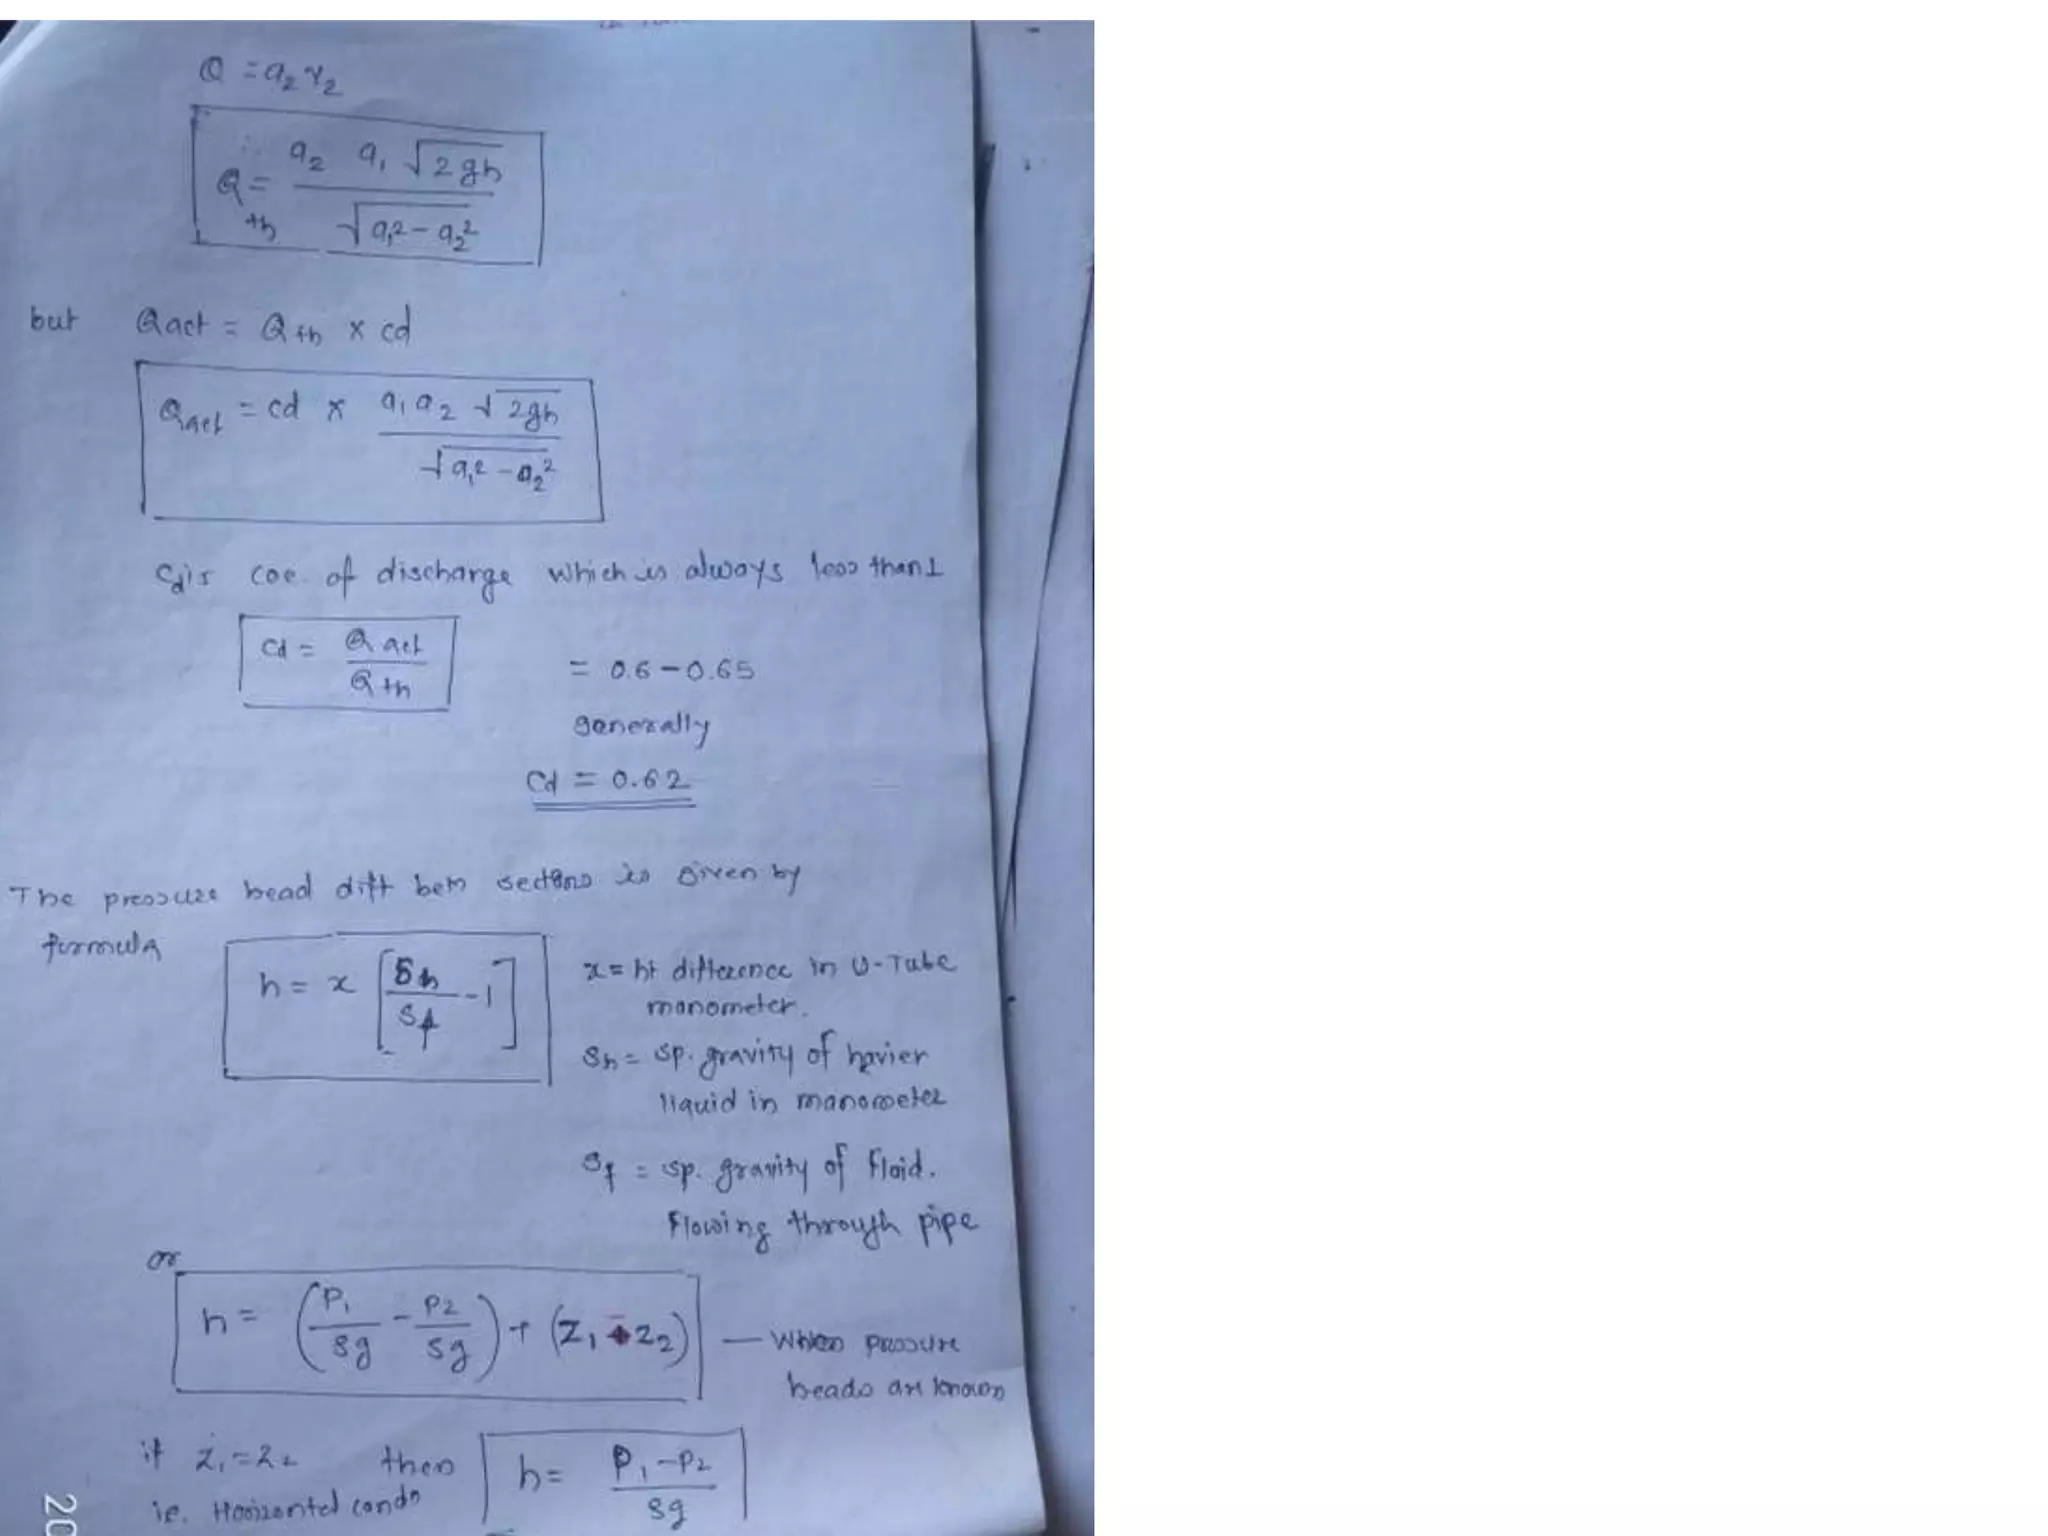 Q = a₂ v₂
∴ Q th = a₂ a₁ √2gh / √a₁² - a₂²
but Qact = Qth × cd
Qact = cd × a₁ a₂ √2gh / √a₁² - a₂²
Cd is coe. of discharge which is always less than 1
Cd = Qact / Qth = 0.6 - 0.65
generally
Cd = 0.62
The pressure head diff betn sections is given by
formula
h = x [Sh / Sf - 1] x = ht difference in U-Tube
manometer.
Sh = sp. gravity of havier
liquid in manometer
Sf = sp. gravity of Fluid.
Flowing through pipe
or
h = (P₁ / ρg - P₂ / ρg) + (Z₁ - Z₂) — When pressure
heads are known
if Z₁ = Z₂ then h = P₁ - P₂ / ρg
ie. Horizontal condn
20